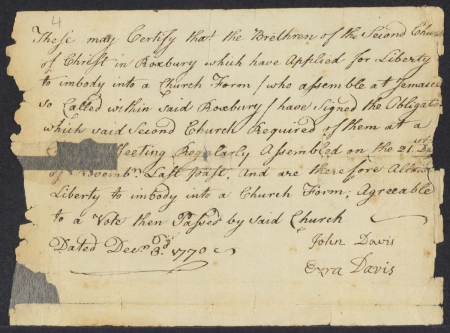 4
These may Certify that the Brethren of the Second Chur
of Christ in Roxbury which have Applied for Liberty
to imbody into a Church Form / who assemble at Jemaic
so Called within said Roxbury / have Signed the Obligati
which said Second Church Required of them at a
Meeting Regularly Assembled on the 21st Da
of Novembr. Last past, And are therefore Allow
Liberty to imbody into a Church Form; Agreeable
to a Vote then Passed by said Church
Dated Decr. 3d. 1770
John Davis
Ezra Davis